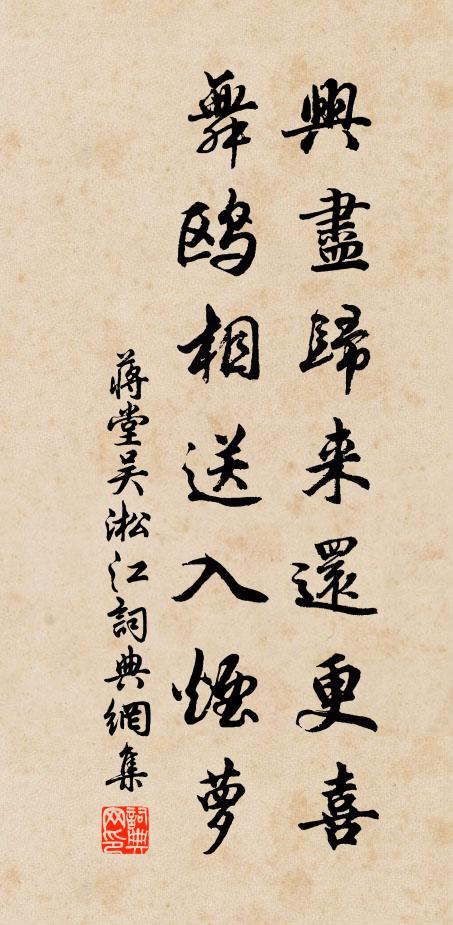 興盡歸来還更喜
舞鸥相送入煙萝
蒋堂吴淞江詞典網集
詞典网印